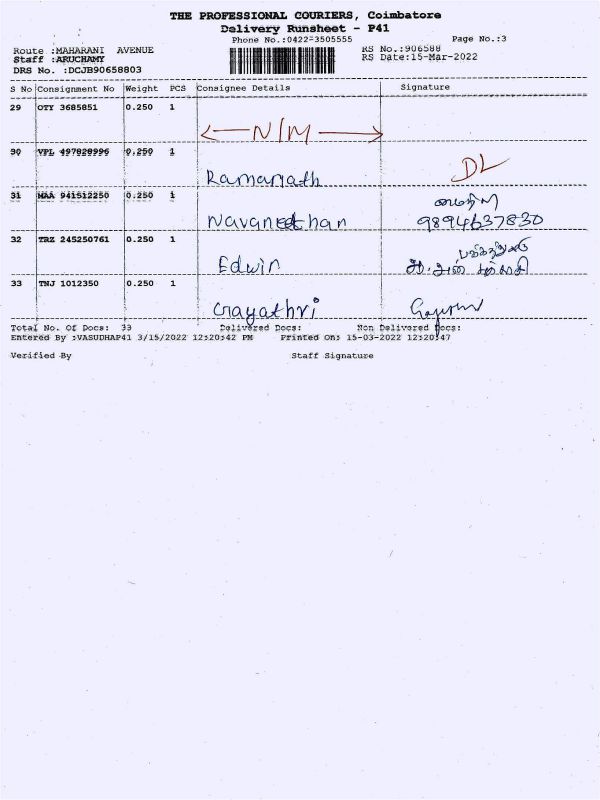 THE PROFESSIONAL COURIERS, Coimbatore
Delivery Runsheet - P41
Phone No.:0422-3505555 Page No.:3
Route :MAHARANI AVENUE RS No.:906588
Staff :ARUCHAMY RS Date:15-Mar-2022
DRS No. :DCJB90658803
S No Consignment No Weight PCS Consignee Details Signature
29 OTY 3685851 0.250 1
N/M
30 VPL 497828996 0.250 1 DL
Ramanath
31 MAA 941512250 0.250 1
Navaneethan 9894637830
32 TRZ 245250761 0.250 1
Edwin
33 TNJ 1012350 0.250 1
Gayathri
Total No. Of Docs: 33 Delivered Docs: Non Delivered Docs:
Entered By :VASUDHAP41 3/15/2022 12:20:42 PM Printed On: 15-03-2022 12:20:47
Verified By Staff Signature